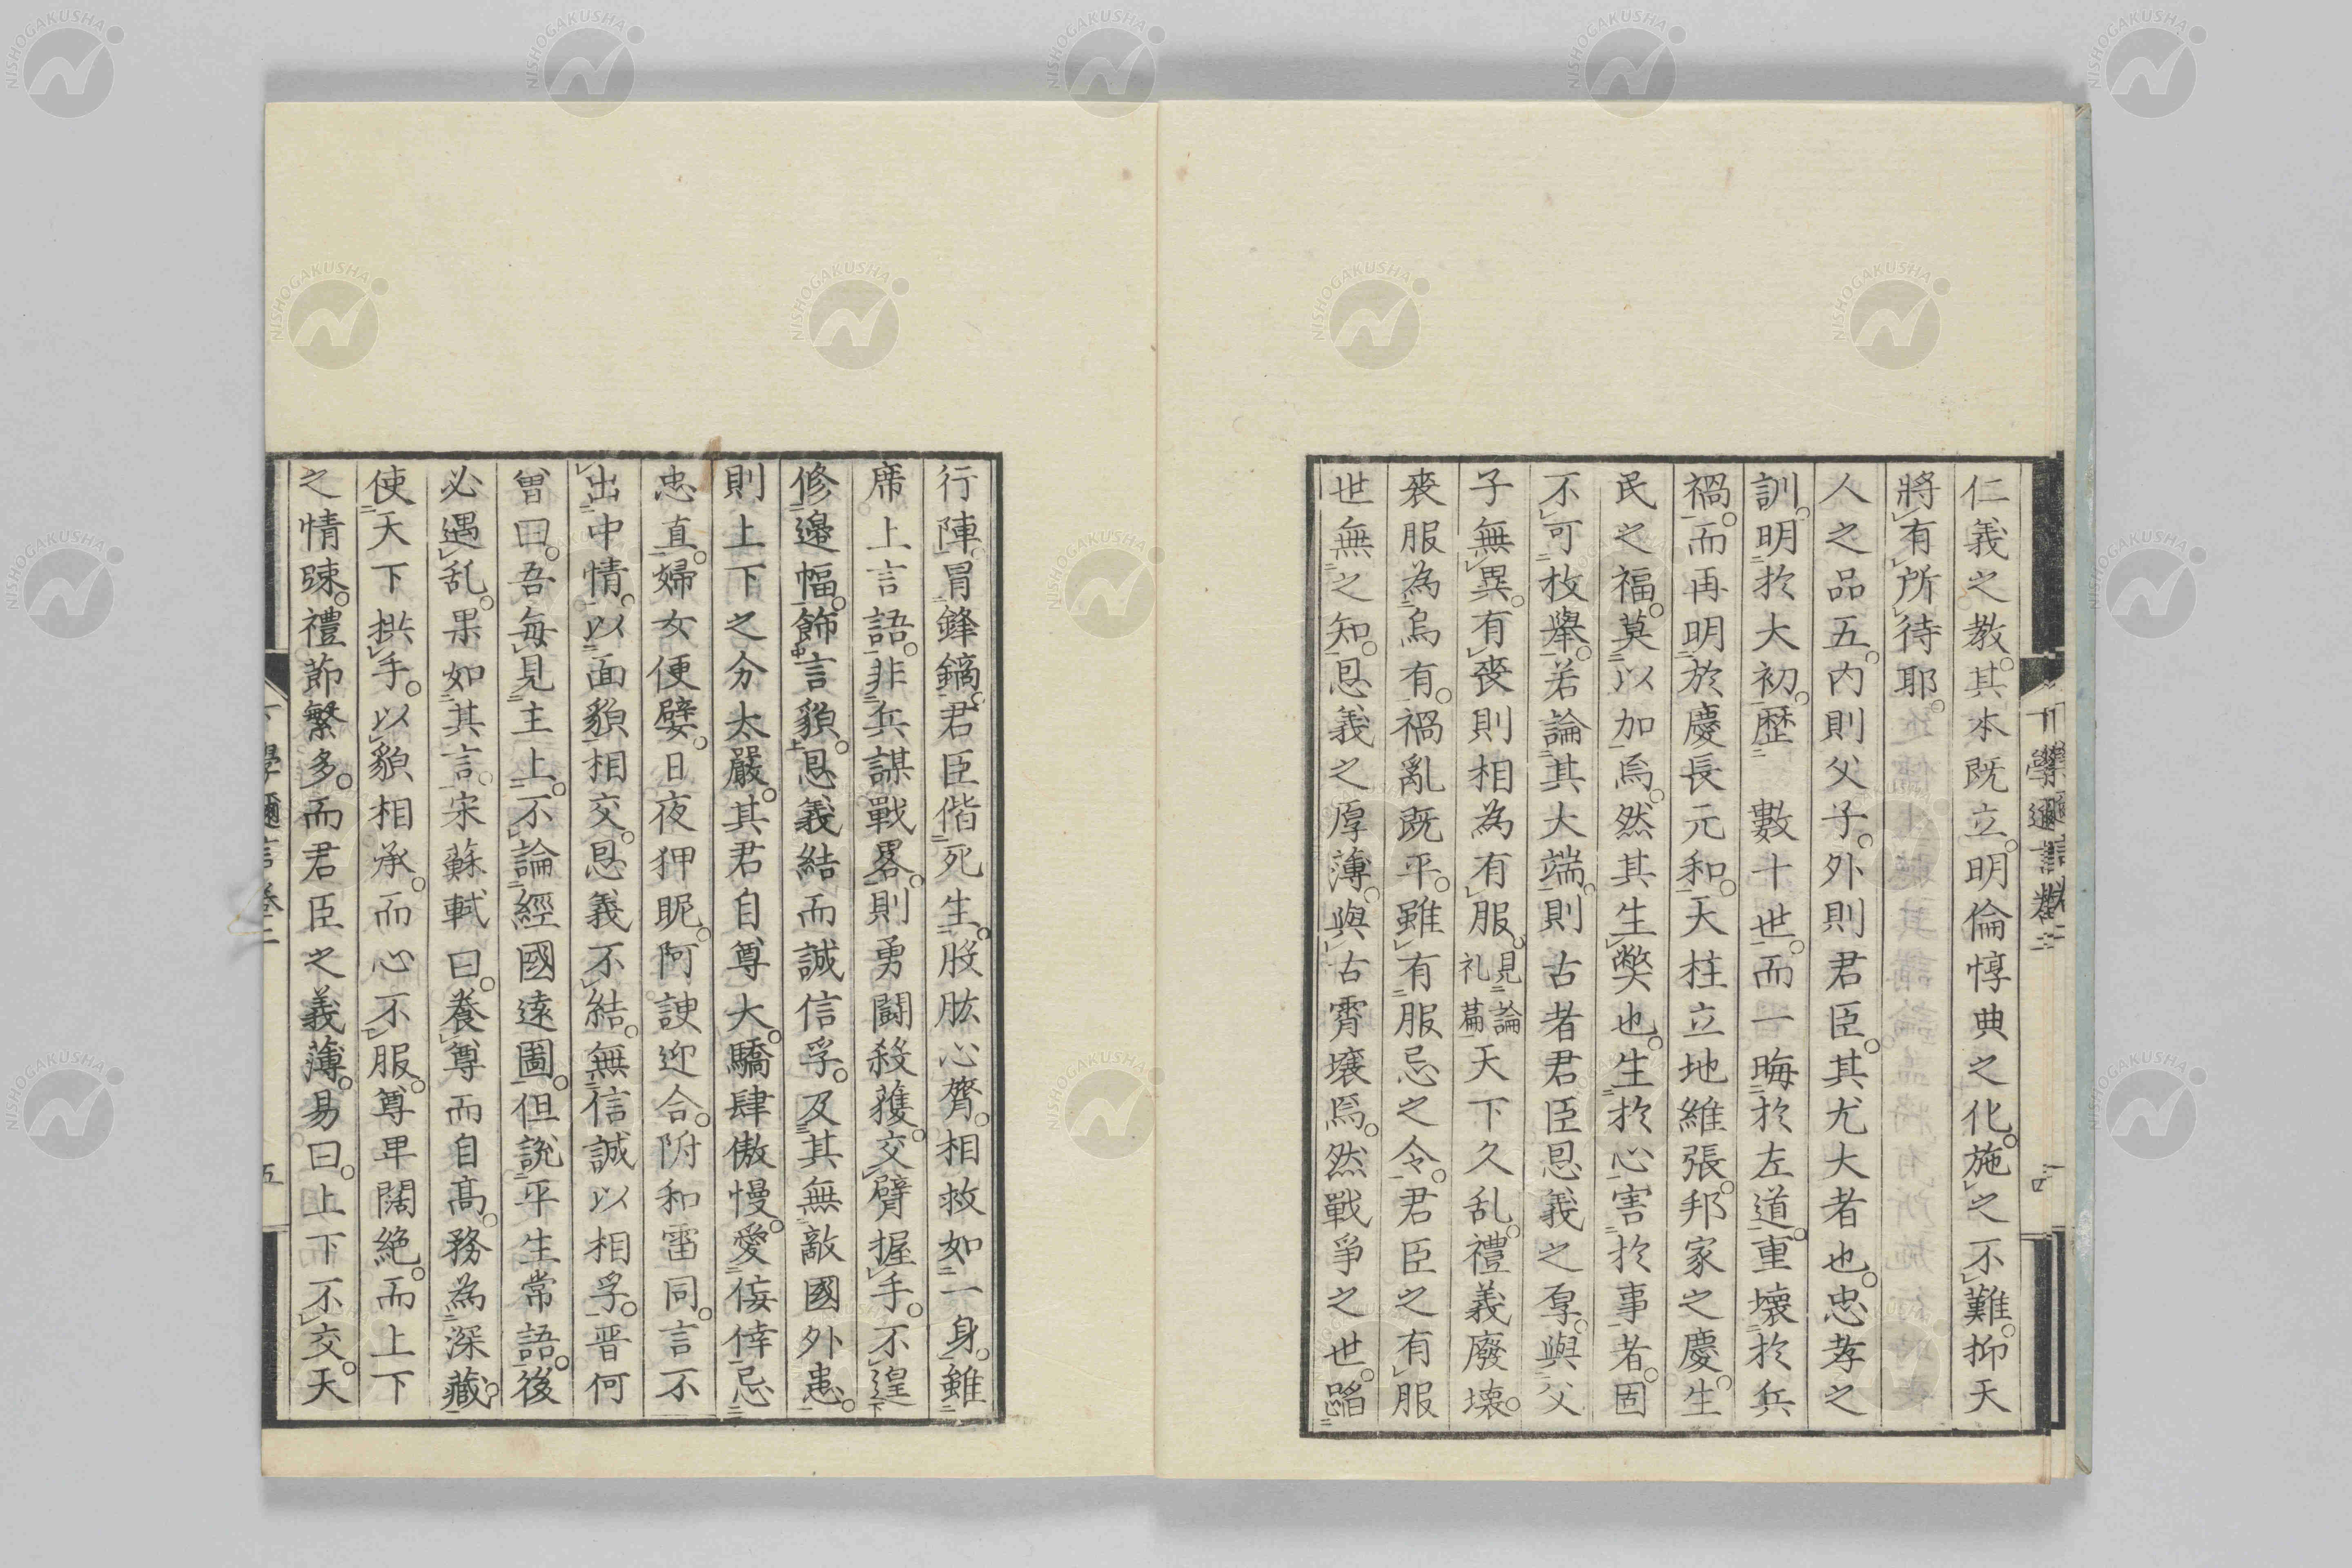 仁義之教。其本既立。明倫惇典之化。施之不難。抑天
將有所待耶。
人之品五。內則父子。外則君臣。其尤大者也。忠孝之
訓。明於大初。歷 數十世。而一晦於左道。重壞於兵
禍。而再明於慶長元和。天柱立地維張。邦家之慶。生
民之福。莫以加焉。然其生弊也。生於心害於事者。固
不可枚舉。若論其大端。則古者君臣恩義之厚。與父
子無異。有喪則相為有服。見論礼篇天下久乱。禮義廢壞。
喪服為烏有。禍亂既平。雖有服忌之令。君臣之有服
世無之知。恩義之厚薄。與古霄壤焉。然戰爭之世。蹈
行陣。冒鋒鏑。君臣偕死生。股肱心膂。相救如一身。雖
席上言語。非兵謀戰畧。則勇鬪殺獲。交臂握手。不遑
修邊幅。飾言貌。恩義結而誠信孚。及其無敵國外患。
則上下之分太嚴。其君自尊大。驕肆傲慢。愛佞倖忌
忠直。婦女便嬖。日夜狎昵。阿諛迎合。附和雷同。言不
出中情。以面貌相交。恩義不結。無信誠以相孚。晋何
曽曰。吾每見主上。不論經國遠圖。但說平生常語。後
必遇乱。果如其言。宋蘇軾曰。養尊而自高。務為深藏。
使天下拱手。以貌相承。而心不服。尊卑闊絕。而上下
之情踈。禮節繁多。而君臣之義薄。易曰。上下不交。天
下學邇言卷二
四
下學邇言卷二
五
NISHOGAKUSHA